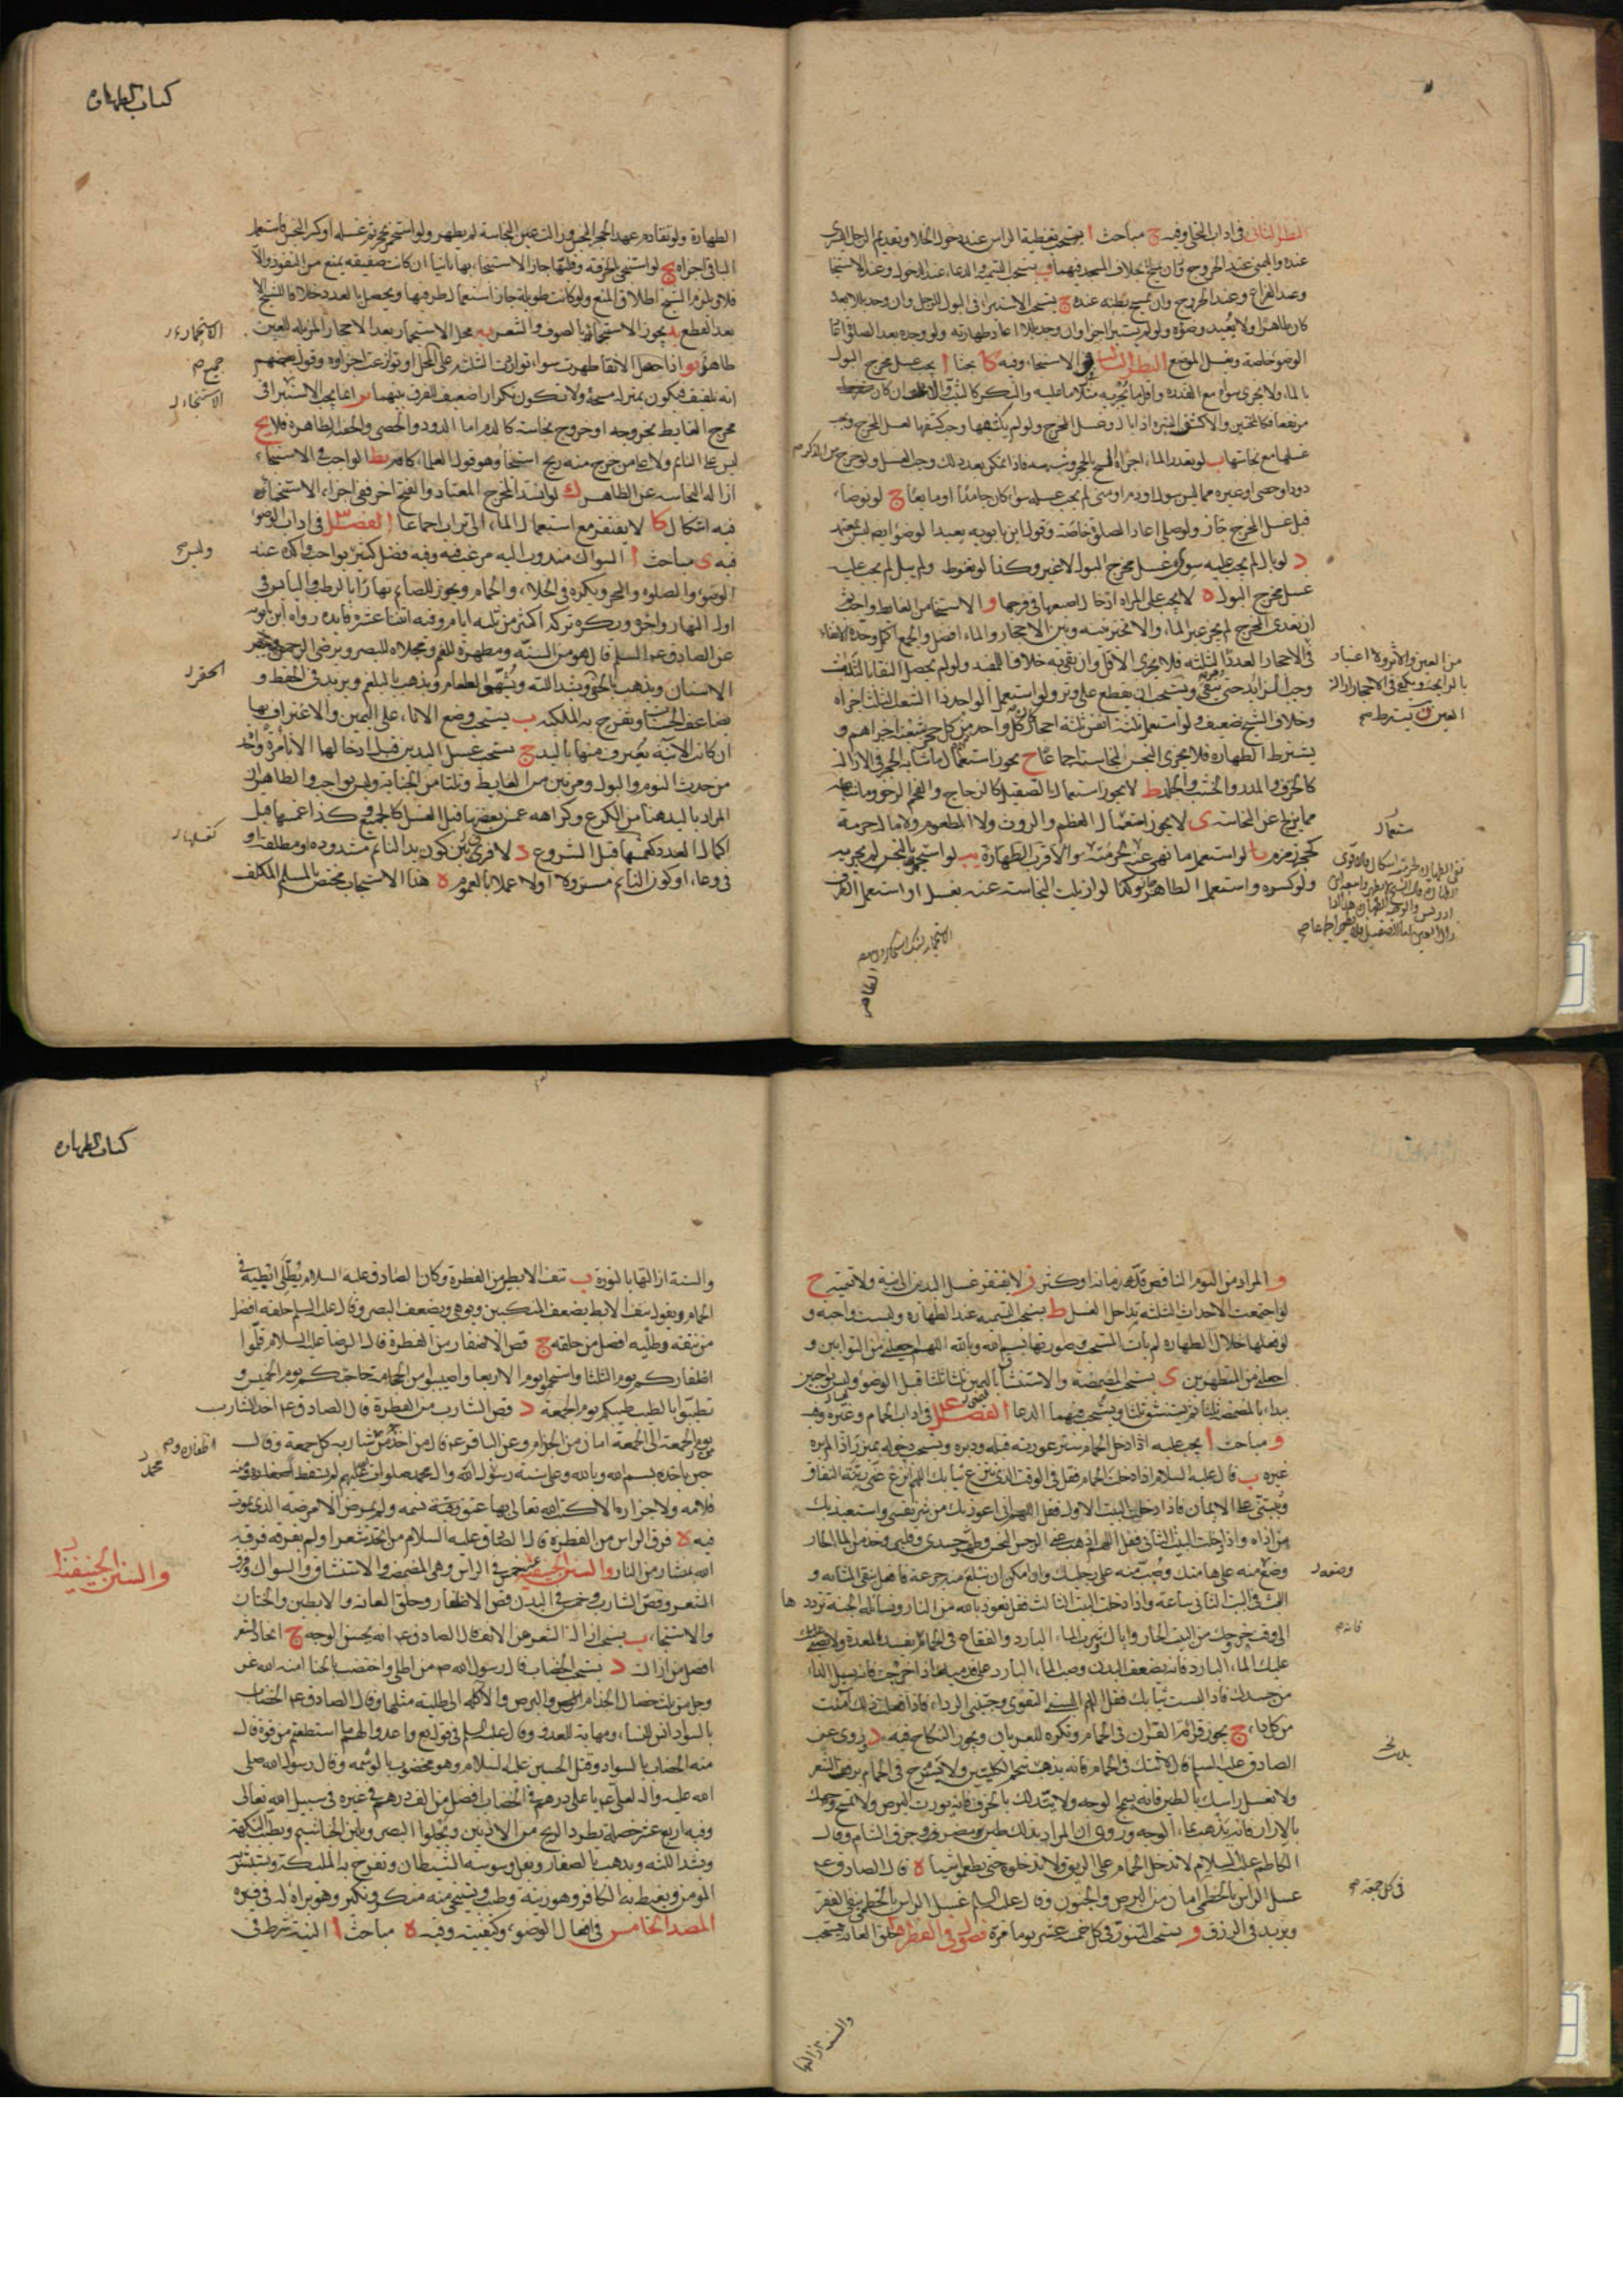 النظر الثانی فی اداب التخلی وفیه ج مباحث ا یستحب تغطیة الراس عند دخول الخلا وتقدیم الرجل الیسری
عنده والیمنی عند الخروج بخلاف المسجد فیهما ب یستحب التسمیة والدعا عند الدخول وعند الاستنجا
وعند الفراغ وعند الخروج وان یمسح بطنه عنده ج یستحب الاستبرا فی البول للرجل وان وجد بللا بعده
کان طاهرا ولا یعید وضوءه ولو لم یستبر اجزا وان وجد بللا اعاد طهارته ولو وجده بعد الصلوة اعاد
الوضوء خاصة وغسل الموضع النظر الثالث فی الاستنجاء وفیه کا بحثا ا یجب غسل مخرج البول
بالماء ولا یجزی سواه مع القدرة واقل ما یجزیه مثلا ما علیه
غسلها مع نجاستها ب لو تعذر الماء اجزاه المسح بالحجر وشبهه فاذا تمکن بعد ذلک وجب الغسل ولو خرج من الذکر
دود او حصی او غیره مما لیس ببول او دم او منی لم یجب غسله سواء کان جامدا او مایعا ج لو توضا
قبل غسل المخرج جاز ولو صلی اعاد الصلوة خاصة وقول ابن بابویه یعید الوضوء ایضا لیس بمعتمد
د لو بال لم یجب علیه سوی غسل مخرج البول لا غیر وکذا لو تغوط ولم یبل لم یجب علیه
غسل مخرج البول ه لا یجب علی المراه ادخال اصبعها فی فرجها و الاستنجا من الغایط واجب
ان تعدی المخرج لم یجز غیر الماء والا تخیر بینه وبین الاحجار والماء افضل والجمع اکمل
فی الاحجار العدد الثلثه فلا یجزی الاقل وان نقی به خلافا للمفید ولو لم یحصل النقا بالثلاث
وجب الزاید حتی ینقی ویستحب ان یقطع علی وتر ولو استعمل الواحد ذا الشعب الثلث اجزاه
وخلاف الشیخ ضعیف ولو استعمل ثلثة انفس ثلثة احجار کل واحد من کل حجر شعبة اجزاهم و
یشترط الطهاره فلا یجزی النجس اجماعا ح یجوز استعمال ما شابه الحجر فی الازالة
کالخزف والمدر والخشب والجلد ط لا یجوز استعمال الصقیل کالزجاج والفحم الرخو
مما یزلج عن النجاسة ی لا یجوز استعمال العظم والروث ولا المطعوم ولا ما له حرمة
کحجر زمزم یا لو استعمل ما نهی عنه لحرمته فالاقرب الطهارة یب لو استجمر بالنجس لم یجزیه
ولو کسره واستعمل الطاهر وکذا لو ازیلت النجاسة عنه بغسل او استعمل الطرف
کتاب الطهارة
الطهارة ولو تقادم عهد الحجر النجس وزالت عین النجاسة لم یطهر ولو استجمر بحجر ثم غسله او کسر النجس واستعمل
الباقی اجزاه یج لو استنجی بالخرقة وقلبها جاز الاستنجاء بها ثانیا ان کانت صفیقه یمنع من النفوذ والا
فلا ویلزم الشیخ اطلاق المنع ولو کانت طویلة جاز استعمال طرفیها ویحصل العدد خلافا للشیخ الا
بعد القطع ید یجوز الاستنجاء بالصوف والشعر یه محل الاستجمار بعد الاحجار المزیله للعین
طاهر یو اذا حصل الانقا طهرت سوا تواردت الثلثة علی المحل او توزعت اجزاوه وقول بعضهم
انه تلفیق فیکون بمنزلة مسحة ولا یکون تکرارا ضعیف للفرق بینهما یز انما یجب الاستنجا فی
مخرج الغایط بخروجه او خروج نجاسة کالدم اما الدود والحصی والحقنة الطاهرة فلا یح
لیس علی النائم ولا علی من خرج منه ریح استنجا وهو قول العلما کافة یط الواجب فی الاستنجاء
ازالة النجاسة عن الظاهر ک لو انسد المخرج المعتاد وانفتح اخر ففی اجزاء الاستجمار
فیه اشکال کا لا یفتقر مع استعمال الماء الی تراب اجماعا الفصل فی اداب الوضو
فیه ی مباحث ا السواک مندوب الیه مرغب فیه وفیه فضل کثیر واکده عند
الوضوء والصلوة والسحر ویکره فی الخلاء والحمام ویجوز للصائم نهارا بالرطب والیابس فی
اول النهار واخره ویکره ترکه اکثر من ثلثه ایام وفیه اثنتا عشرة فایده رواه ابن بابویه
عن الصادق علیه السلم قال هو من السنه ومطهرة للفم ومجلاه للبصر ویرضی الرحمن ویبیض
الاسنان ویذهب بالحفر ویشد اللثه ویشهی الطعام ویذهب بالبلغم ویزید فی الحفظ و
یضاعف الحسنات وتفرح به الملئکة ب یستحب وضع الاناء علی الیمین والاغتراف بها
ان کانت الآنیة یغترف منها بالید ج یستحب غسل الیدین قبل ادخالها الاناء مرة واحدة
من حدث النوم والبول ومرتین من الغایط وثلثا من الجنابة ولیس بواجب والظاهر ان
المراد بالید هنا من الکوع وکراهه غمس بعضها قبل الغسل کالجمیع وکذا غمسها قبل
اکمال العدد کغمسها قبل الشروع د لا فرق بین کون ید النائم مشدوده او مطلقة او
فی وعاء او کون النائم مسرولا اولا عملا بالعموم ه هذا الاستحباب مختص بالمسلم المکلف
و المراد من النوم الناقض قل زمانه او کثر ز لا یفتقر غسل الیدین الی نیة ولا تسمیة ح
لو اجتمعت الاحداث الثلثه تداخل الغسل ط یستحب التسمیه عند الطهارة ولیست واجبه و
لو فعلها خلال الطهارة لم یات بالمستحب وصورتها بسم الله وبالله اللهم اجعلنی من التوابین و
اجعلنی من المتطهرین ی یستحب المضمضة والاستنشاق بالیمین ثلثا ثلثا قبل الوضوء ولیسا بواجبین
یبداء بالمضمضة ثلثا ثم یستنشق ثلثا ویستحب فیهما الدعا الفصل فی اداب الحمام وغیره وفیه
و مباحث ا یجب علیه اذا دخل الحمام ستر عورتیه قبله ودبره ویستحب دخوله بمیزر اذا لم یره
غیره ب قال علیه السلام اذا دخلت الحمام فقل فی الوقت الذی تنزع ثیابک اللهم انزع عنی ربقة النفاق
وثبتنی علی الایمان فاذا دخلت البیت الاول فقل اللهم انی اعوذ بک من شر نفسی واستعیذ بک
من اذاه واذا دخلت البیت الثانی فقل اللهم اذهب عنی الرجس النجس وطهر جسدی وقلبی وخذ من الماء الحار
وضعه علی هامتک وصب منه علی رجلیک وان امکن ان تبلع منه جرعة فافعل فانه ینقی المثانه و
البث فی البیت الثانی ساعة واذا دخلت البیت الثالث فقل نعوذ بالله من النار ونساله الجنة ترددها
الی وقت خروجک من البیت الحار وایاک وشرب الماء البارد والفقاع فی الحمام فانه یفسد المعدة ولا تصبن
علیک الماء البارد فانه یضعف البدن وصب الماء البارد علی قدمیک اذا خرجت فانه یسل الداء
من جسدک فاذا لبست ثیابک فقل اللهم البسنی التقوی وجنبنی الردی فاذا فعلت ذلک امنت
من کل داء ج یجوز قراءة القران فی الحمام ویکره للعریان ویجوز النکاح فیه د روی عن
الصادق علیه السلام قال لا تتک فی الحمام فانه یذهب شحم الکلیتین ولا تسرح فی الحمام فانه یرقق الشعر
ولا تغسل راسک بالطین فانه یسمج الوجه ولا تتدلک بالخزف فانه یورث البرص ولا تمسح وجهک
بالازار فانه یذهب بماء الوجه وروی ان المراد بذلک طین مصر وخزف الشام وقال
الکاظم علیه السلام لا تدخل الحمام علی الریق ولا تدخلوه حتی تطعموا شیئا ه قال الصادق ع
غسل الراس بالخطمی امان من البرص والجنون وقال علیه السلم غسل الراس بالخطمی ینفی الفقر
ویزید فی الرزق و یستحب التنور فی کل خمسة عشر یوما مرة فصل فی الفطرة ا حلق العانة مستحب
والسنة ازالتها
کتاب الطهارة
والسنة ازالتها بالنورة ب نتف الابط من الفطرة وکان الصادق علیه السلام یطلی ابطیه فی
الحمام ویقول نتف الابط یضعف المنکبین ویوهی ویضعف البصر وقال علیه السلم حلقه افضل
من نتفه وطلیه افضل من حلقه ج قص الاظفار من الفطرة قال الرضا علیه السلام قلموا
اظفارکم یوم الثلثا واستحموا یوم الاربعا واصیبوا من الحجامة حاجتکم یوم الخمیس و
تطیبوا باطیب طیبکم یوم الجمعة د قص الشارب من الفطرة قال الصادق ع اخذ الشارب
من الجمعة الی الجمعة امان من الجذام وعن الباقر ع قال من اخذ من شاربه کل جمعة وقال
حین یاخذه بسم الله وبالله وعلی سنة رسول الله وال محمد صلوات الله علیهم لم یسقط منه
قلامه ولا جزازة الا کتب الله تعالی له بها عتق رقبة نسمه ولم یمرض الا مرضه الذی یموت
فیه ه فرق الراس من الفطرة قال الصادق علیه السلام من اتخذ شعرا ولم یفرقه فرقه
الله بمنشار من النار والسنن الحنیفیة عشر خمس فی الراس وهی المضمضة والاستنشاق والسواک وفرق
الشعر وقص الشارب وخمس فی البدن قص الاظفار وحلق العانه والابطین والختان
والاستنجاء ب یستحب ازالة الشعر من الانف قال الصادق ع انه یحسن الوجه ج اتخاذ الشعر
افضل من ازالته د یستحب الخضاب قال رسول الله ص من اطلی واختضب بالحنا امنه الله عز
وجل من ثلث خصال الجذام والبرص والآکلة الی طلیة مثلها وقال الصادق ع الخضاب
بالسواد انس للنساء ومهابة للعدو وقال علیه السلم فی قوله تع واعدوا لهم ما استطعتم من قوة قال
منه الخضاب بالسواد وقتل الحسین علیه السلام وهو مخضوب بالوسمه وقال رسول الله صلی
الله علیه واله لعلی ع یا علی درهم فی الخضاب افضل من الف درهم فی غیره فی سبیل الله تعالی
وفیه اربع عشرة خصلة یطرد الریح من الاذنین ویجلوا البصر ویلین الخیاشیم ویطیب النکهة
ویشد اللثه ویذهب بالصفار ویقل وسوسة الشیطان وتفرح به الملئکة ویستبشر
المومن ویغیظ به الکافر وهو زینة وطیب ویستحیی منه منکر ونکیر وهو براءة له فی قبره
المقصد الخامس فی افعال الوضوء وکیفیته وفیه ه مباحث ا النیة شرط فی